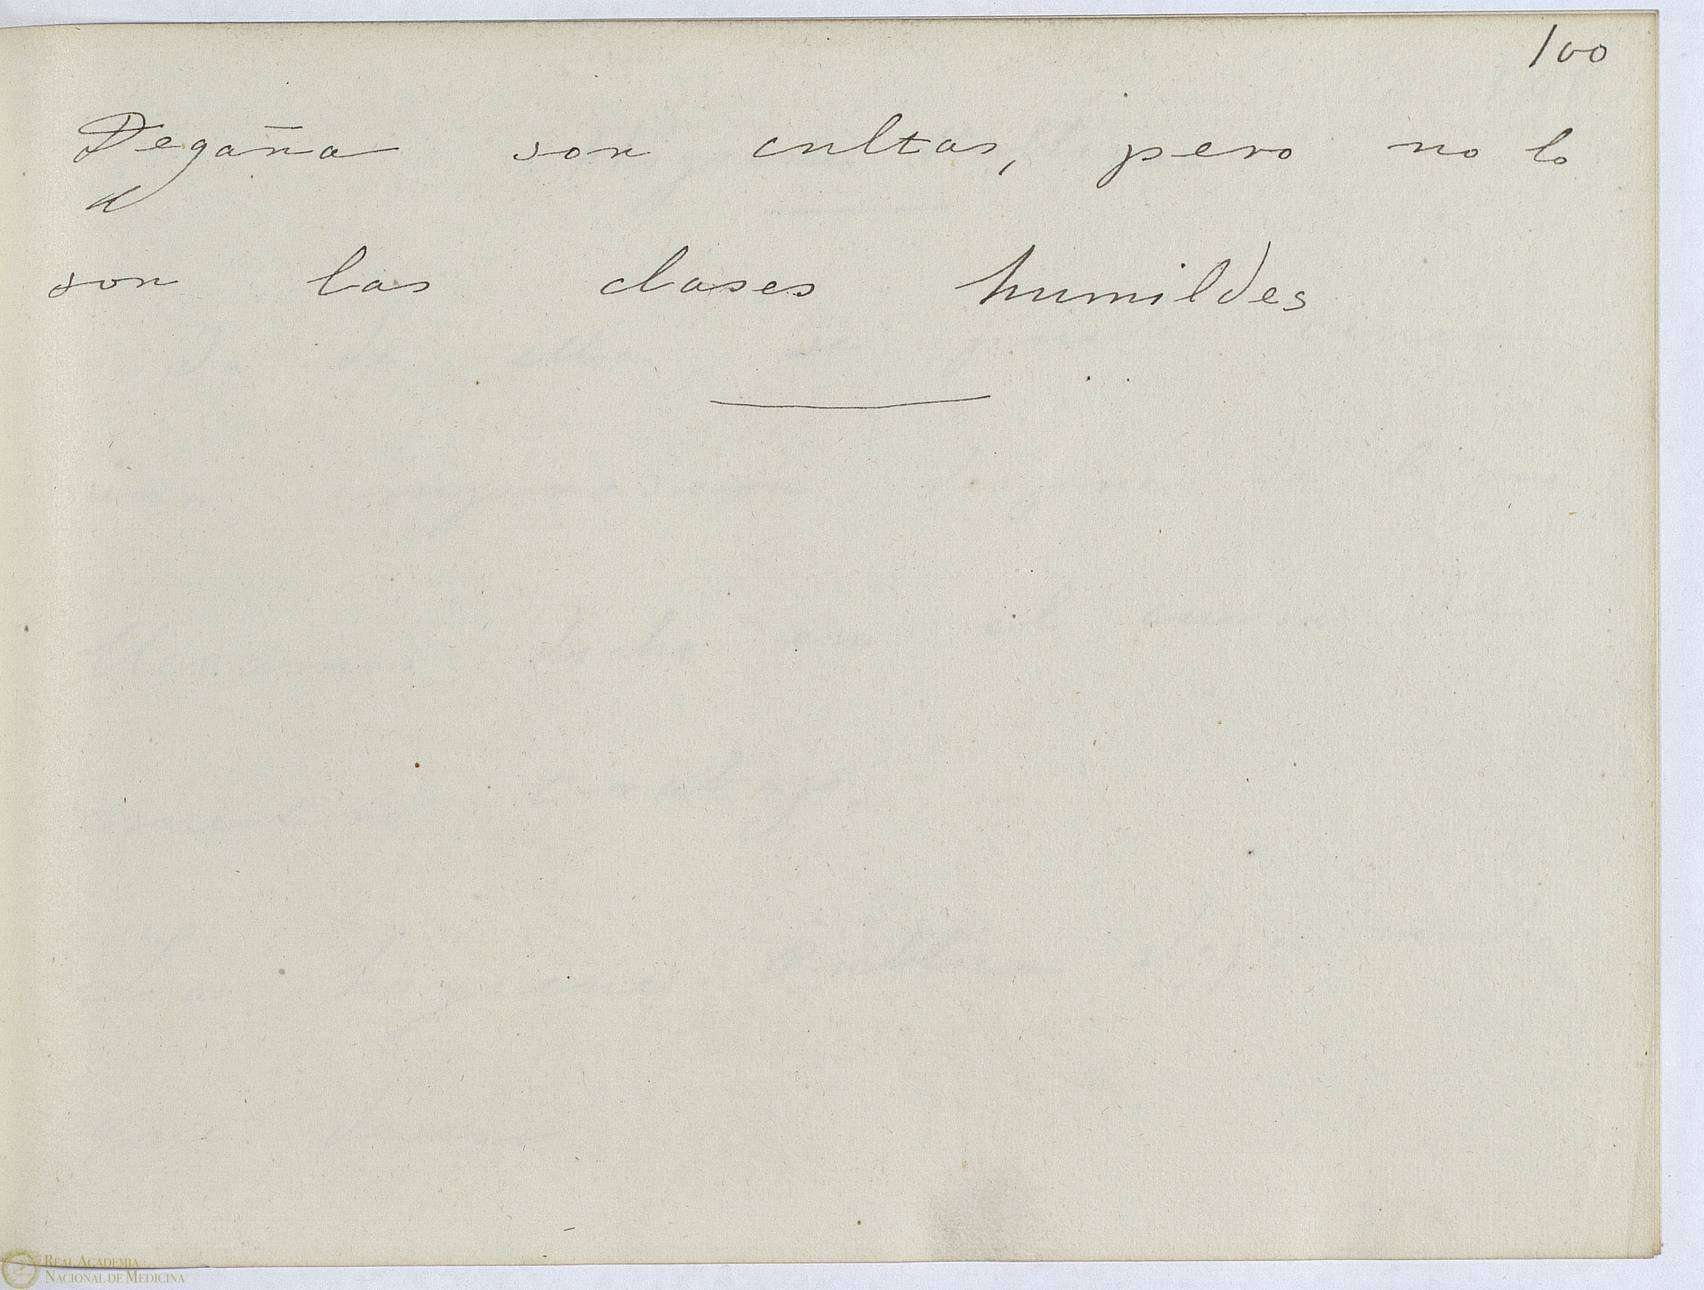 100
Degaña son cultas, pero no lo
son las clases humildes
REAL ACADEMIA
NACIONAL DE MEDICINA